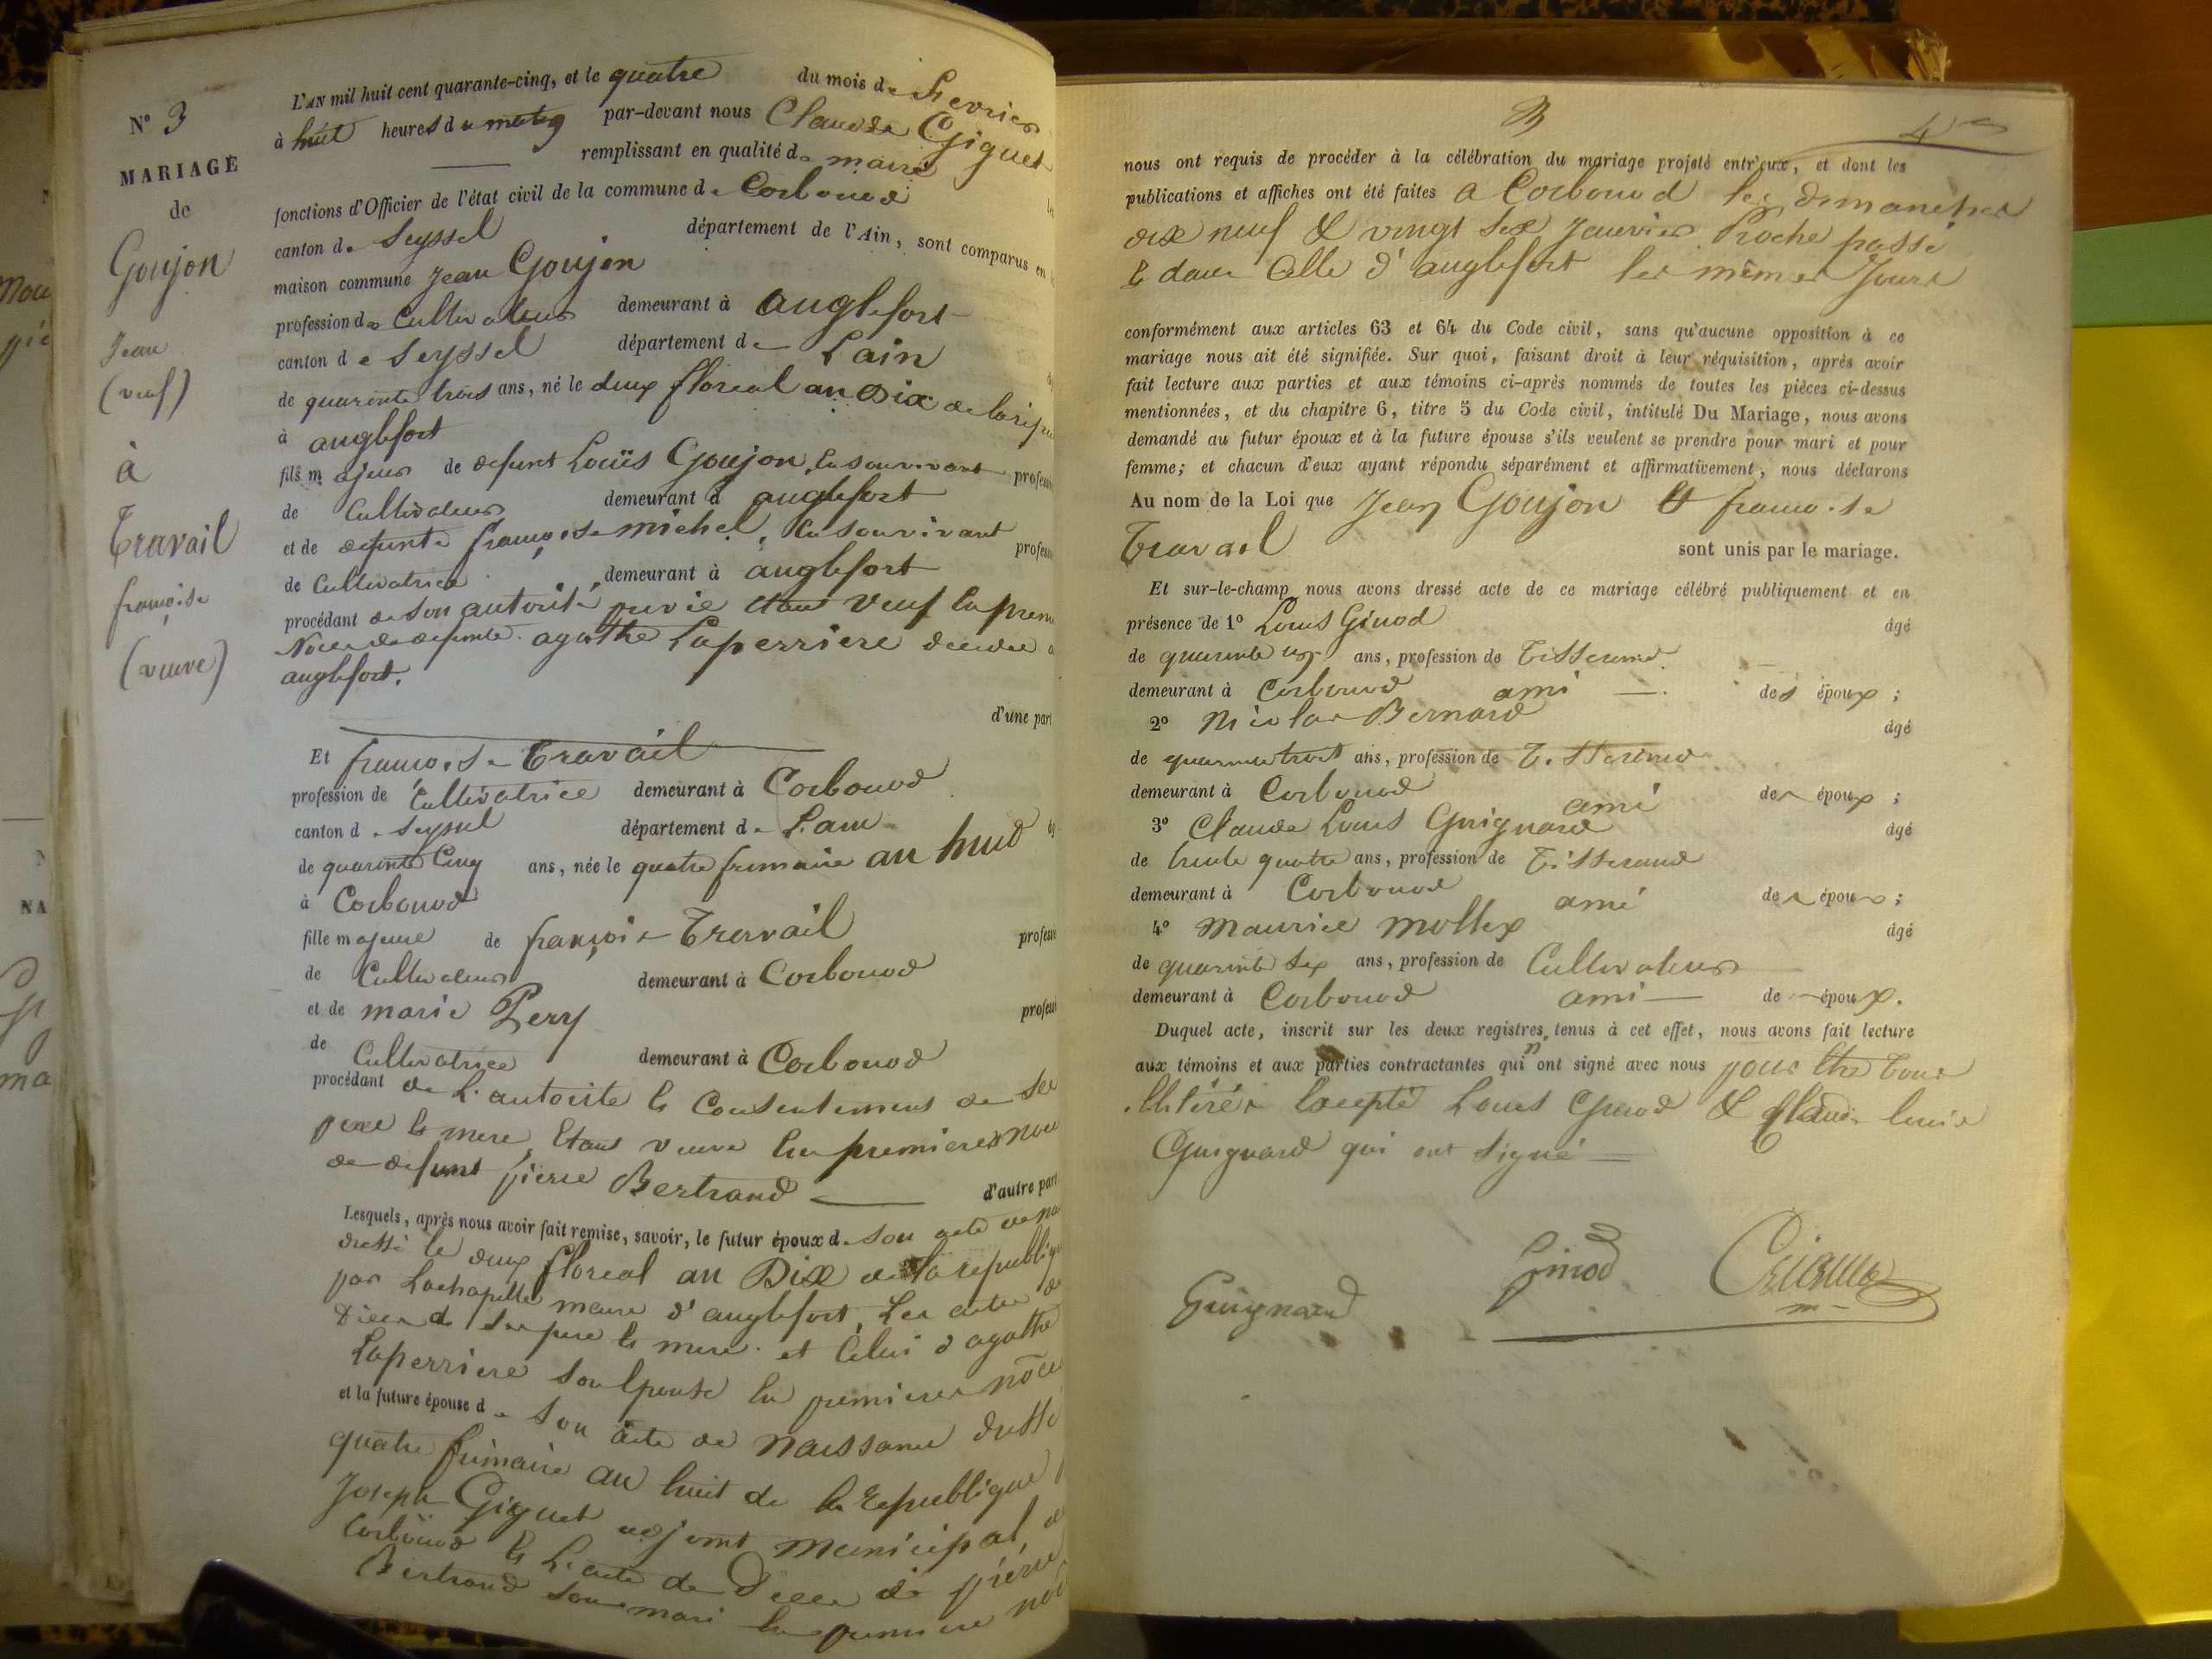 N° 3
MARIAGE
de
Goujon
Jean
(veuf)
à
Travail
françoise
(veuve)
L'AN mil huit cent quarante-cinq, et le quatre du mois de fevrier
à huit heures du matin par-devant nous Claude Giguet
remplissant en qualité de maire
fonctions d'Officier de l'état civil de la commune de Corbonod
canton de Seyssel département de l'Ain, sont comparus en
maison commune Jean Goujon
profession de Cultivateur demeurant à anglefort
canton de Seyssel département de Lain
de quarente trois ans, né le deux floreal an Dix de la repu
à anglefort
fils majeur de defunt Louis Goujon, lu souvivant profess
de Cultivateur demeurant à anglefort
et de defunte françoise michel, lu souvivant profess
de Cultivatrice demeurant à anglefort
procédant de son autorité privie etant veuf lu prem
Noces de defunte agathe Laperriere decedee a
anglefort.
d'une part
Et françoise Travail
profession de Cultivatrice demeurant à Corbonod
canton de Seyssel département de Lain
de quarente Cinq ans, née le quatre frimaire an huit
à Corbonod
fille majeure de françois Travail profess
de Cultivateur demeurant à Corbonod
et de marie Pery profess
de Cultivatrice demeurant à Corbonod
procédant de L'autorite & Consentement de ses
pere & mere, Etant veuve lu premieres noce
de defunt pierre Bertrand d'autre part
Lesquels, après nous avoir fait remise, savoir, le futur époux de son acte de na
dressé le deux floreal an Dix de la republiq
par Lachapelle maire d'anglefort, Les actes de
Déces de ses pere & mere et Celui d'agathe
Laperriere son Epouse lu premieres noce
et la future épouse de son acte de naissance dressé
quatre frimaire an huit de la Republique
Joseph Giguet adjoint municipal, de
Corbonod & L'acte de Déces de pierre
Bertrand son mari lu premiere noc
3
4
nous ont requis de procéder à la célébration du mariage projeté entr'eux, et dont les
publications et affiches ont été faites a Corbonod les dimanches
dix neuf & vingt six Janvier Proche passé
& dans Celle d'anglefort les mêmes Jours
conformément aux articles 63 et 64 du Code civil, sans qu'aucune opposition à ce
mariage nous ait été signifiée. Sur quoi, faisant droit à leur réquisition, après avoir
fait lecture aux parties et aux témoins ci-après nommés de toutes les pièces ci-dessus
mentionnées, et du chapitre 6, titre 5 du Code civil, intitulé Du Mariage, nous avons
demandé au futur époux et à la future épouse s'ils veulent se prendre pour mari et pour
femme; et chacun d'eux ayant répondu séparément et affirmativement, nous déclarons
Au nom de la Loi que Jean Goujon & françoise
Travail sont unis par le mariage.
Et sur-le-champ nous avons dressé acte de ce mariage célébré publiquement et en
présence de 1° Louis Ginod âgé
de quarente un ans, profession de Tisserand
demeurant à Corbonod ami des époux;
2° Nicolas Bernard âgé
de quarente trois ans, profession de Tisserand
demeurant à Corbonod ami des époux;
3° Claude Louis Guignard âgé
de trente quatre ans, profession de Tisserand
demeurant à Corbonod ami des époux;
4° Maurice mollex âgé
de quarente six ans, profession de Cultivateur
demeurant à Corbonod ami des époux.
Duquel acte, inscrit sur les deux registres tenus à cet effet, nous avons fait lecture
aux témoins et aux parties contractantes qui n'ont signé avec nous pour être tous
illitérés Excepté Louis Ginod & Claude louis
Guignard qui ont signé
Guignard Ginod Giguet
m